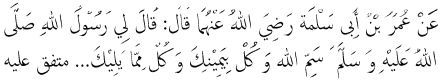 عَنْ عُمَرَ بْنْ أَبِى سَلْمَة رَضِيَ اللهُ عَنْهُمَا قَالَ: قَالَ لِي رَسُوْلَ اللهِ صَلَّى
اللهُ عَلَيْهِ وَ سَلَّمَ سَمِّ الله وَ كُلْ بِيَمِيْنِكَ وَ كُلْ مِمَّا يَلِيْكَ... متفق عليه